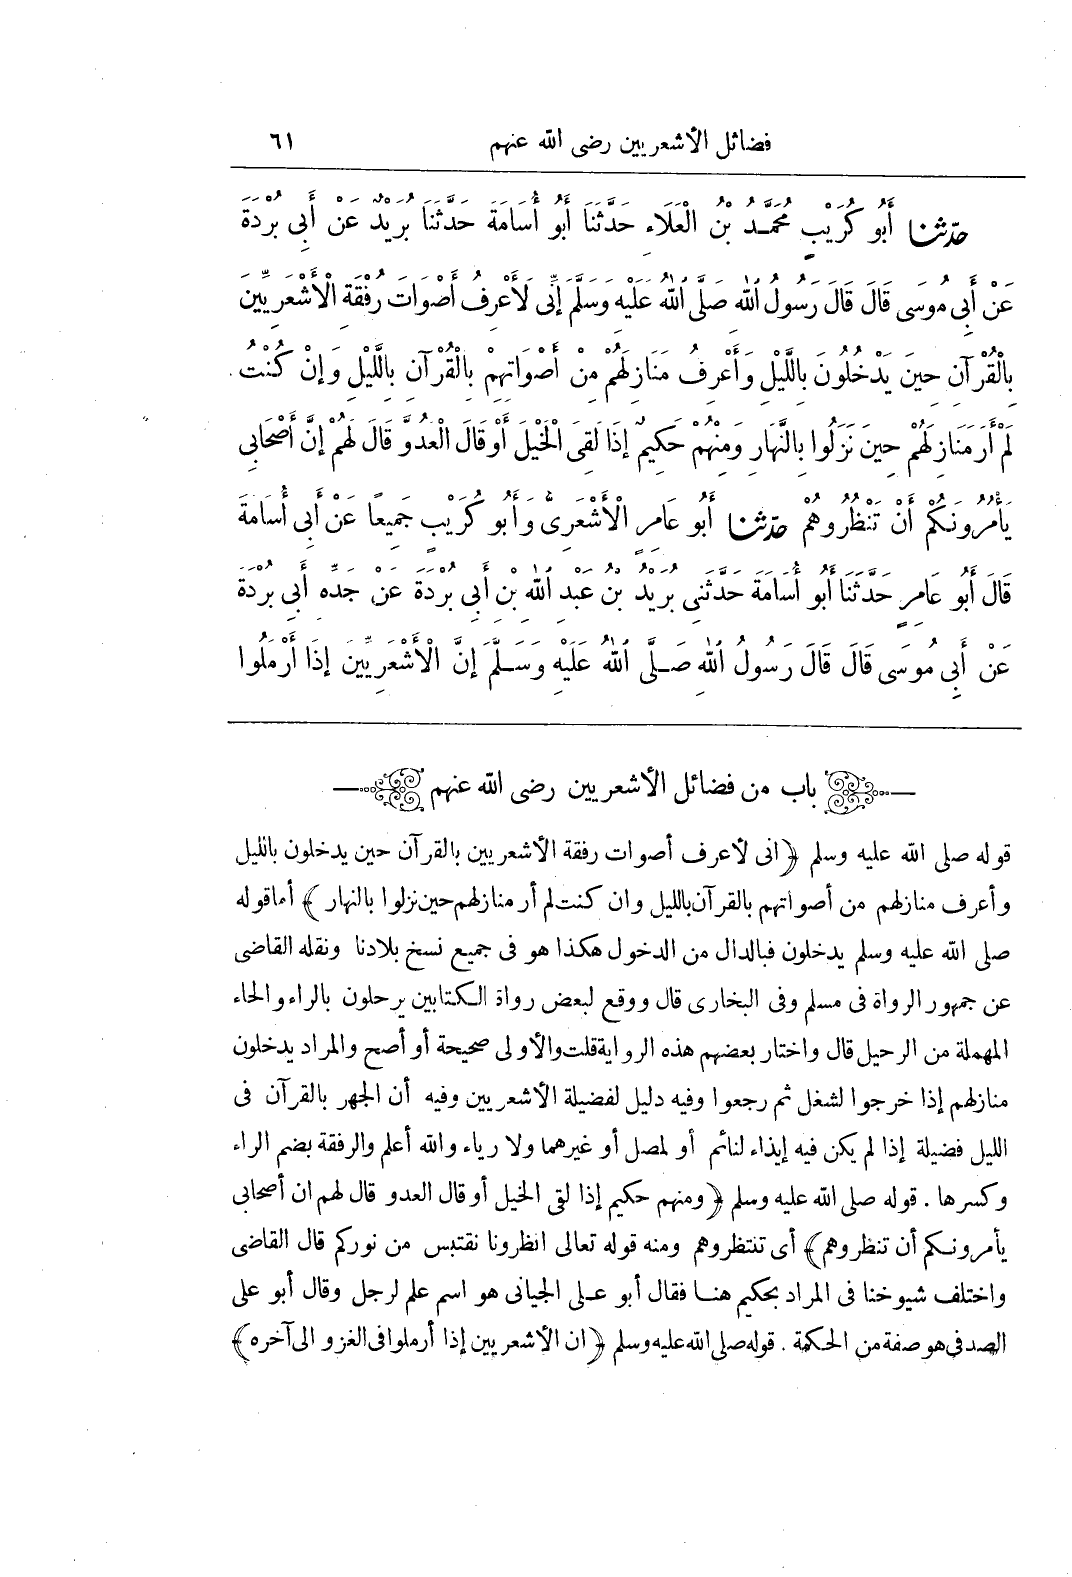 فضائل الأشعريين رضى الله عنهم ٦١
حدّثنا أَبُو كُرَيْبٍ مُحَمَّدُ بْنُ الْعَلَاءِ حَدَّثَنَا أَبُو أُسَامَةَ حَدَّثَنَا بُرَيْدٌ عَنْ أَبِى بُرْدَةَ
عَنْ أَبِى مُوسَى قَالَ قَالَ رَسُولُ اللهِ صَلَّى اللهُ عَلَيْهِ وَسَلَّمَ إِنِّى لَأَعْرِفُ أَصْوَاتَ رُفْقَةِ الْأَشْعَرِيِّينَ
بِالْقُرْآنِ حِينَ يَدْخُلُونَ بِاللَّيْلِ وَأَعْرِفُ مَنَازِلَهُمْ مِنْ أَصْوَاتِهِمْ بِالْقُرْآنِ بِاللَّيْلِ وَإِنْ كُنْتُ
لَمْ أَرَ مَنَازِلَهُمْ حِينَ نَزَلُوا بِالنَّهَارِ وَمِنْهُمْ حَكِيمٌ إِذَا لَقِىَ الْخَيْلَ أَوْ قَالَ الْعَدُوَّ قَالَ لَهُمْ إِنَّ أَصْحَابِى
يَأْمُرُونَكُمْ أَنْ تَنْظُرُوهُمْ حدّثنا أَبُو عَامِرٍ الْأَشْعَرِىُّ وَأَبُو كُرَيْبٍ جَمِيعًا عَنْ أَبِى أُسَامَةَ
قَالَ أَبُو عَامِرٍ حَدَّثَنَا أَبُو أُسَامَةَ حَدَّثَنِى بُرَيْدُ بْنُ عَبْدِ اللهِ بْنِ أَبِى بُرْدَةَ عَنْ جَدِّهِ أَبِى بُرْدَةَ
عَنْ أَبِى مُوسَى قَالَ قَالَ رَسُولُ اللهِ صَلَّى اللهُ عَلَيْهِ وَسَلَّمَ إِنَّ الْأَشْعَرِيِّينَ إِذَا أَرْمَلُوا
باب من فضائل الأشعريين رضى الله عنهم
قوله صلى الله عليه وسلم ﴿انى لأعرف أصوات رفقة الأشعريين بالقرآن حين يدخلون بالليل
وأعرف منازلهم من أصواتهم بالقرآن بالليل وان كنت لم أر منازلهم حين نزلوا بالنهار﴾ أما قوله
صلى الله عليه وسلم يدخلون فبالدال من الدخول هكذا هو فى جميع نسخ بلادنا ونقله القاضى
عن جمهور الرواة فى مسلم وفى البخارى قال ووقع لبعض رواة الكتابين يرحلون بالراء والحاء
المهملة من الرحيل قال واختار بعضهم هذه الرواية قلت والأولى صحيحة أو أصح والمراد يدخلون
منازلهم إذا خرجوا لشغل ثم رجعوا وفيه دليل لفضيلة الأشعريين وفيه أن الجهر بالقرآن فى
الليل فضيلة إذا لم يكن فيه إيذاء لنائم أو لمصل أو غيرهما ولا رياء والله أعلم والرفقة بضم الراء
وكسرها . قوله صلى الله عليه وسلم ﴿ومنهم حكيم إذا لقى الخيل أو قال العدو قال لهم ان أصحابى
يأمرونكم أن تنظروهم﴾ أى تنتظروهم ومنه قوله تعالى انظرونا نقتبس من نوركم قال القاضى
واختلف شيوخنا فى المراد بحكيم هنا فقال أبو على الجيانى هو اسم علم لرجل وقال أبو على
الصدفى هو صفة من الحكمة . قوله صلى الله عليه وسلم ﴿ان الأشعريين إذا أرملوا فى الغزو الى آخره﴾